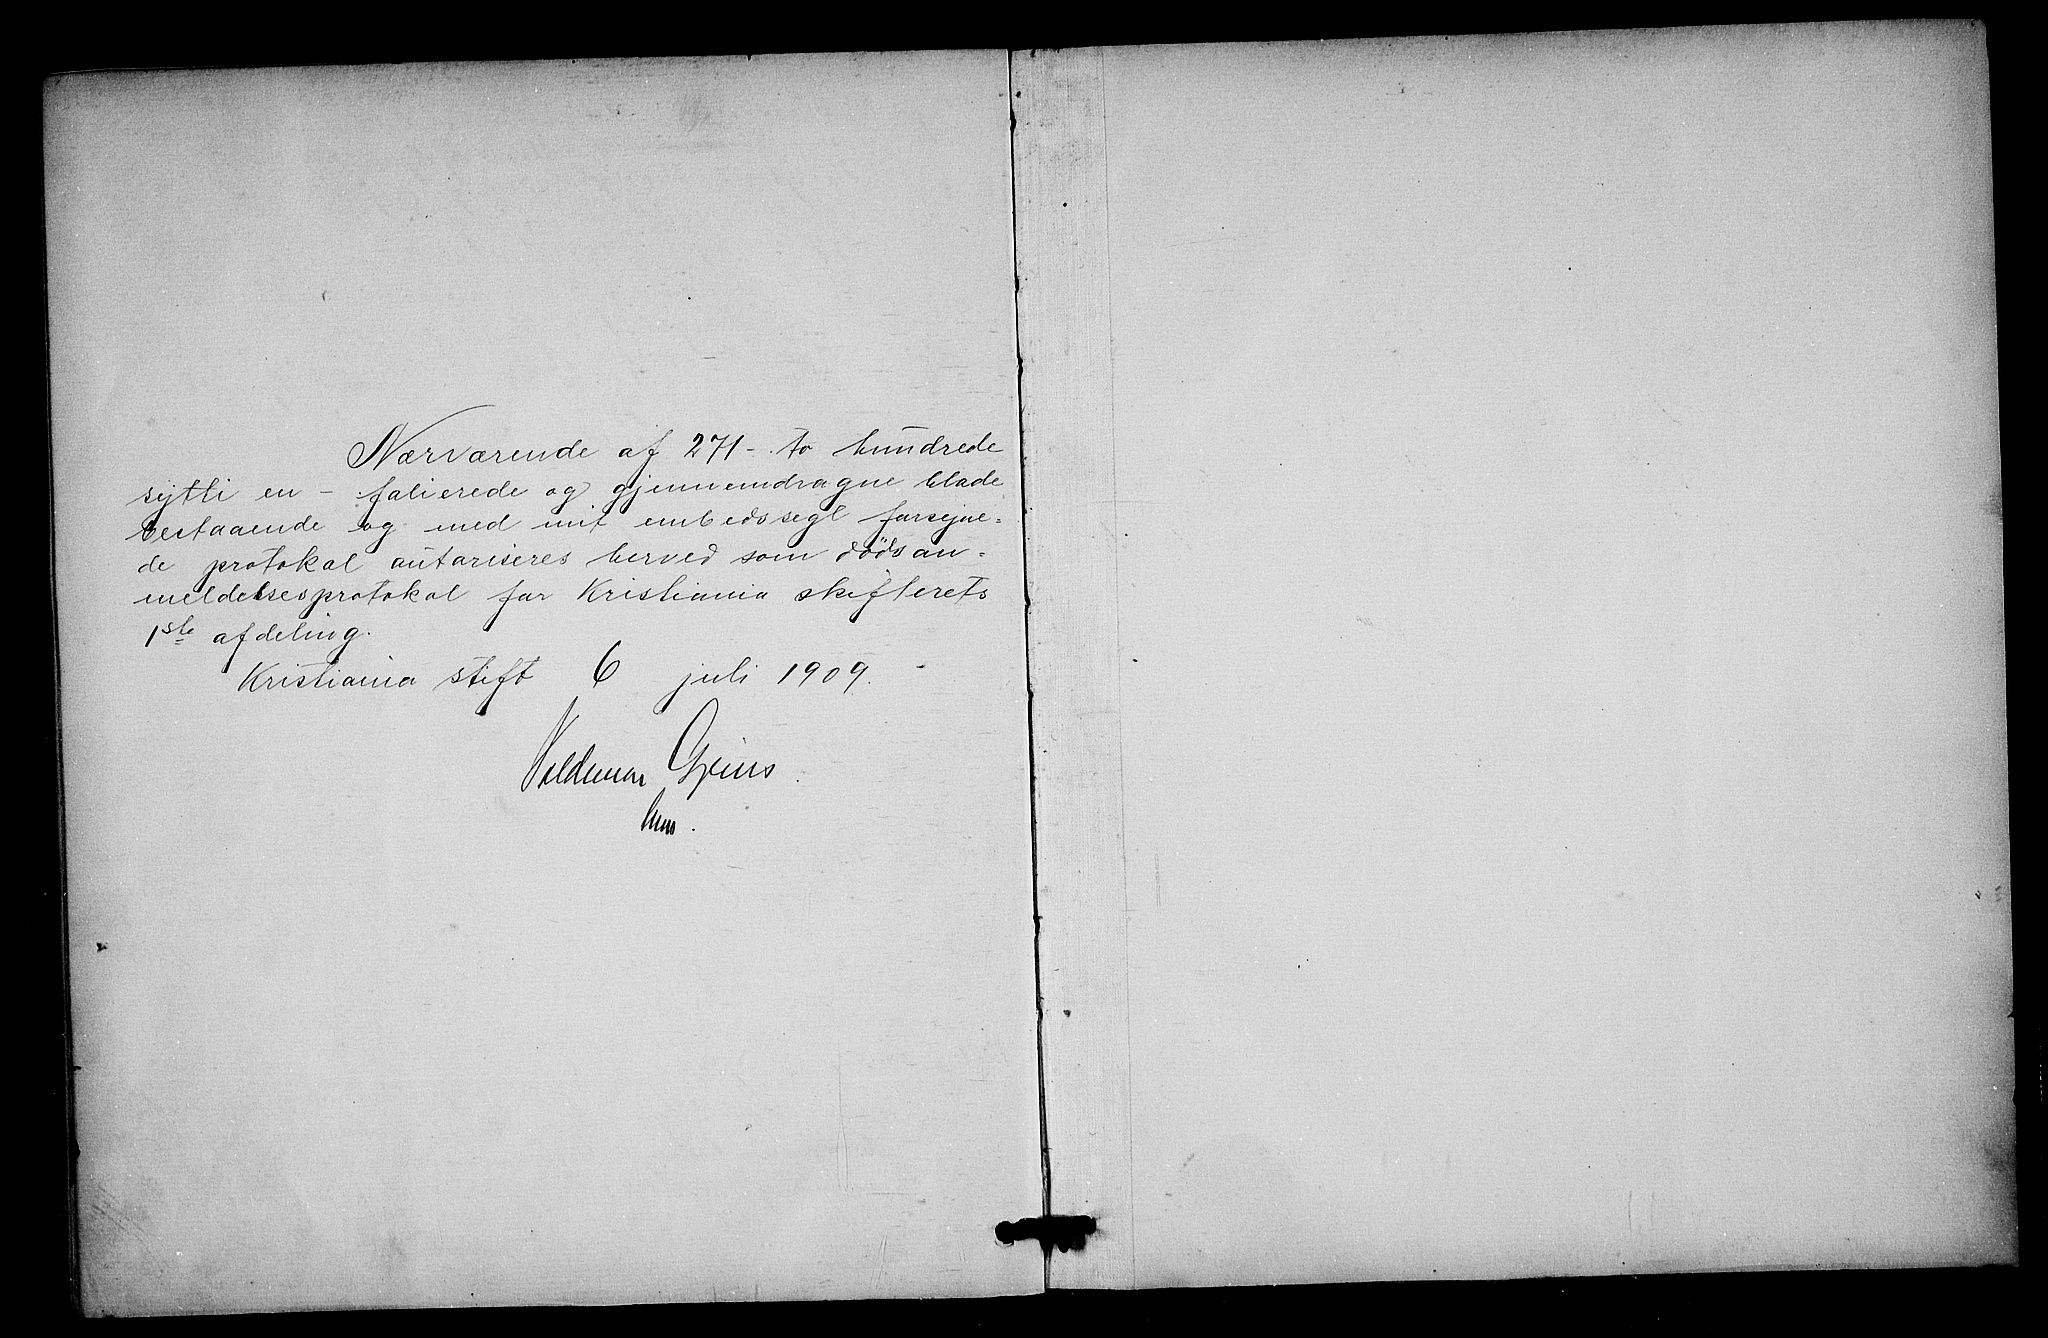 Nærværende af 271 - to hundrede
sytti en - folierede og gjennemdragne blade
bestaaende og med mit embedssegl forsyne=
de protokol autoriseres herved som dødsan=
meldelsesprotokol for Kristiania skifterets
1ste afdeling.
Kristiania stift 6 juli 1909.
Valdemar